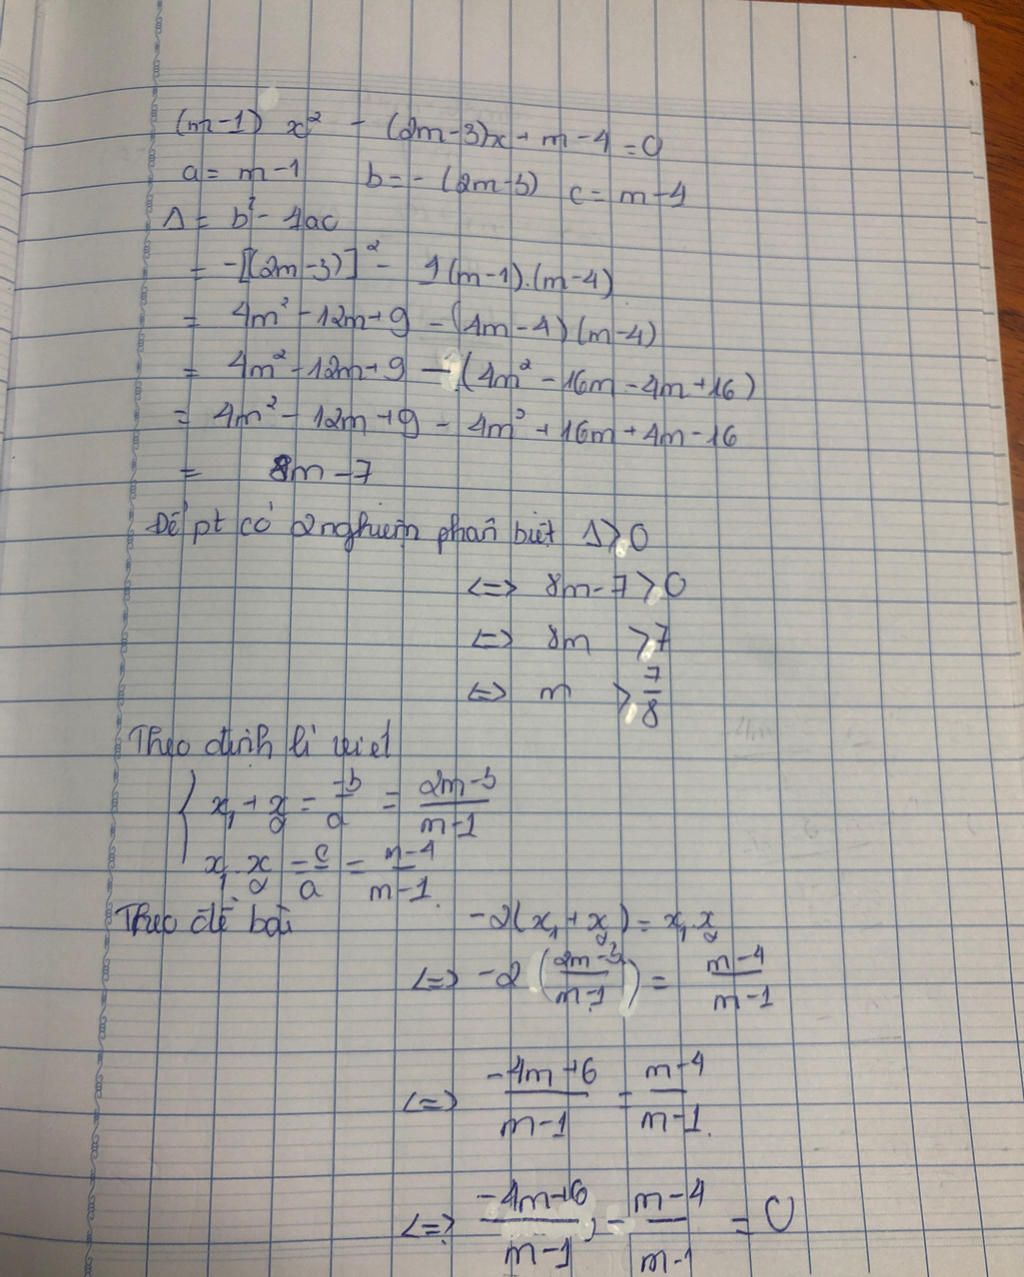 (m-1) x² - (2m-3)x + m-4 = 0
a = m-1 b = -(2m-3) c = m-4
Δ = b² - 4ac
= -[(2m-3)]² - 4(m-1).(m-4)
= 4m² - 12m + 9 - (4m-4)(m-4)
= 4m² - 12m + 9 - (4m² - 16m - 4m + 16)
= 4m² - 12m + 9 - 4m² + 16m + 4m - 16
= 8m - 7
Để pt có 2 nghiệm phân biệt Δ > 0
<=> 8m - 7 > 0
<=> 8m > 7
<=> m > 7/8
Theo định lí viet
{ x₁ + x₂ = -b/a = (2m-3)/(m-1)
x₁.x₂ = c/a = (m-4)/(m-1)
Theo đề bài -2(x₁ + x₂) = x₁.x₂
<=> -2((2m-3)/(m-1)) = (m-4)/(m-1)
<=> (-4m+6)/(m-1) = (m-4)/(m-1)
<=> (-4m+6)/(m-1) - (m-4)/(m-1) = 0